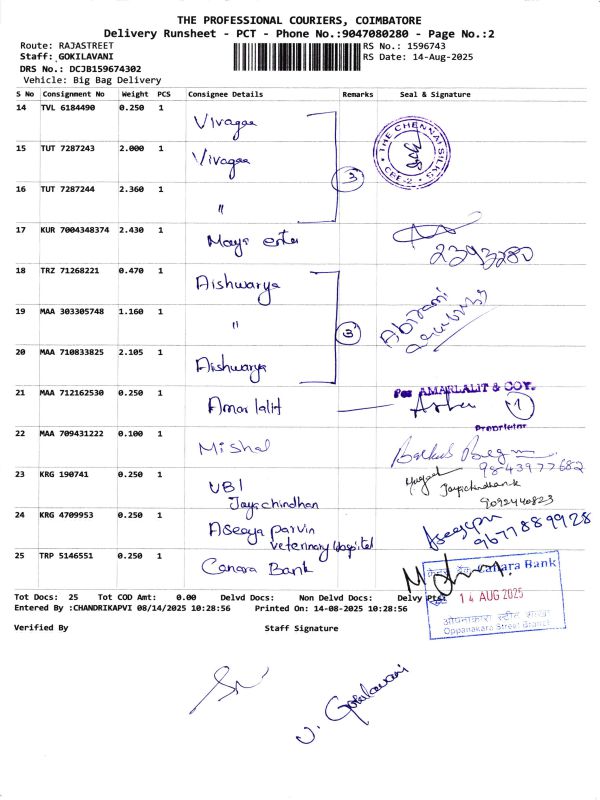 THE PROFESSIONAL COURIERS, COIMBATORE
Delivery Runsheet - PCT - Phone No.:9047080280 - Page No.:2
Route: RAJASTREET
RS No.: 1596743
Staff: GOKILAVANI
RS Date: 14-Aug-2025
DRS No.: DCJB159674302
Vehicle: Big Bag Delivery
S No Consignment No Weight PCS Consignee Details Remarks Seal & Signature
14 TVL 6184490 0.250 1 Vivagaa
THE CHENNAI SILKS CBE-2
15 TUT 7287243 2.000 1 Vivagaa
3
16 TUT 7287244 2.360 1 "
17 KUR 7004348374 2.430 1 Maya
18 TRZ 71268221 0.470 1 Aishwarya
19 MAA 303305748 1.160 1 "
Abirami
3
20 MAA 710833825 2.105 1 Aishwarya
21 MAA 712162530 0.250 1 Amar lalit
For AMARLALIT & COY.
1
Proprietor
22 MAA 709431222 0.100 1 Mishal
9843977682
23 KRG 190741 0.250 1 UBI
Jayachindhan
9092440823
24 KRG 4709953 0.250 1 Aseaya parvin
veterinary Hospital
9677889928
25 TRP 5146551 0.250 1 Canara Bank
केनरा बैंक Canara Bank
14 AUG 2025
ओपनाकारा स्ट्रीट शाखा
Oppanakara Street Branch
Tot Docs: 25 Tot COD Amt: 0.00 Delvd Docs: Non Delvd Docs: Delvy Pts:
Entered By :CHANDRIKAPVI 08/14/2025 10:28:56 Printed On: 14-08-2025 10:28:56
Verified By Staff Signature
V. Gokilavani